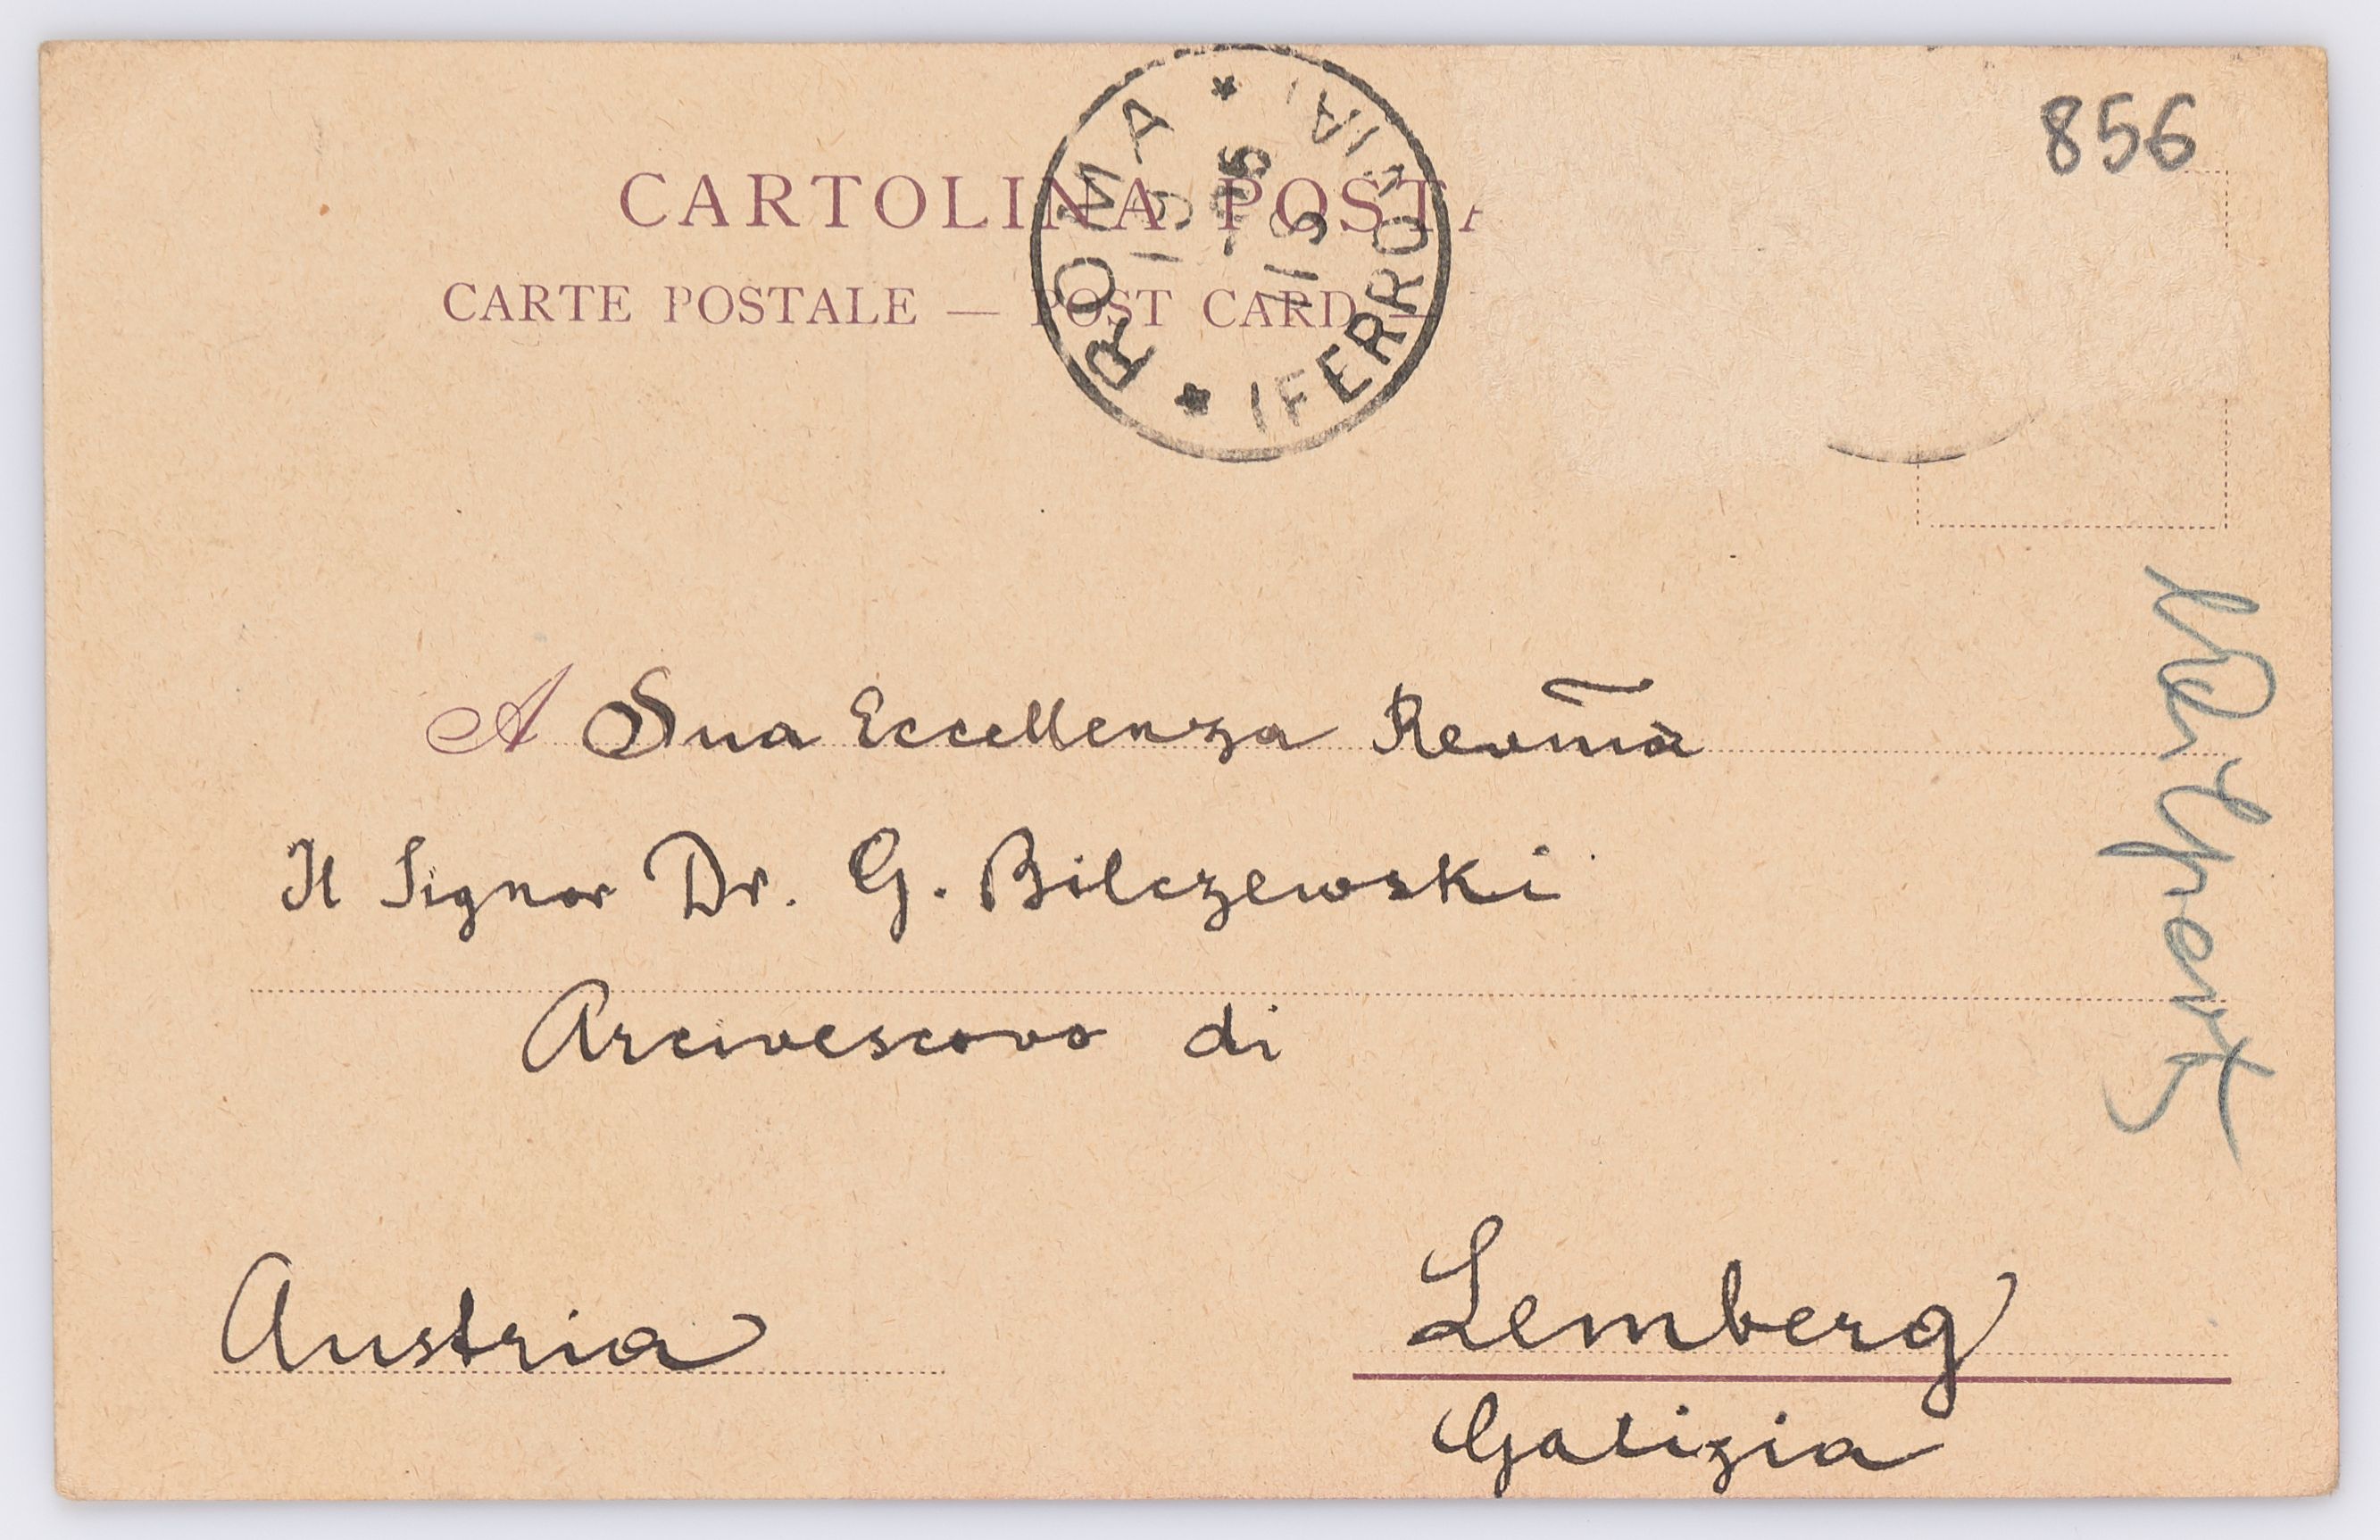 856
CARTOLINA POSTA
CARTE POSTALE — POST CARD —
ROMA * (FERROVIA) *
A Sua Eccellenza Revma
Il Signor Dr. G. Bilczewski
Arcivescovo di
Austria
Lemberg
Galizia